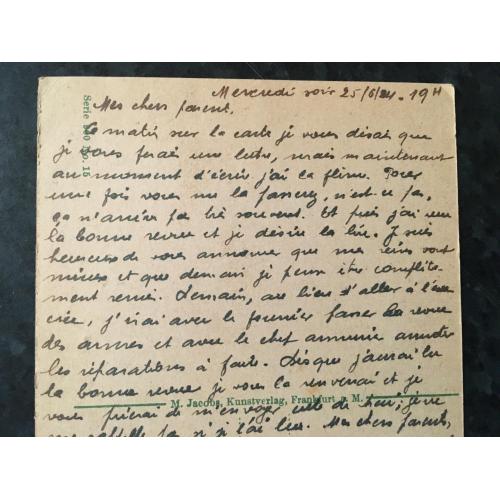 Mercredi soir 25/6/24. 19H
Mes chers parent,
Ce matin sur la carte je vous disais que
je vous ferais une lettre, mais maintenant
au moment d'écrire j'ai la flême. Pour
une fois vous me la passerez, n'est ce pas,
ça n'arrive pas très souvent. Et puis j'ai reçu
la bonne revue et je désire la lire. Je suis
heureux de vous annoncer que mes reins vont
mieux et que demain je peux être complète-
ment remis. Demain, au lieu d'aller à l'exer
cice, j'irai avec le fourrier passer la revue
des armes et avec le chef armurier annoter
les réparations à faire. Dès que j'aurai lu
la bonne revue je vous la renverrai et je
M. Jacobs, Kunstverlag, Frankfurt a. M.
vous prierai de m'envoyer celle de mai, je ne
me rappelle pas si je l'ai lue. Mes chers parents,
Serie 500 No. 15